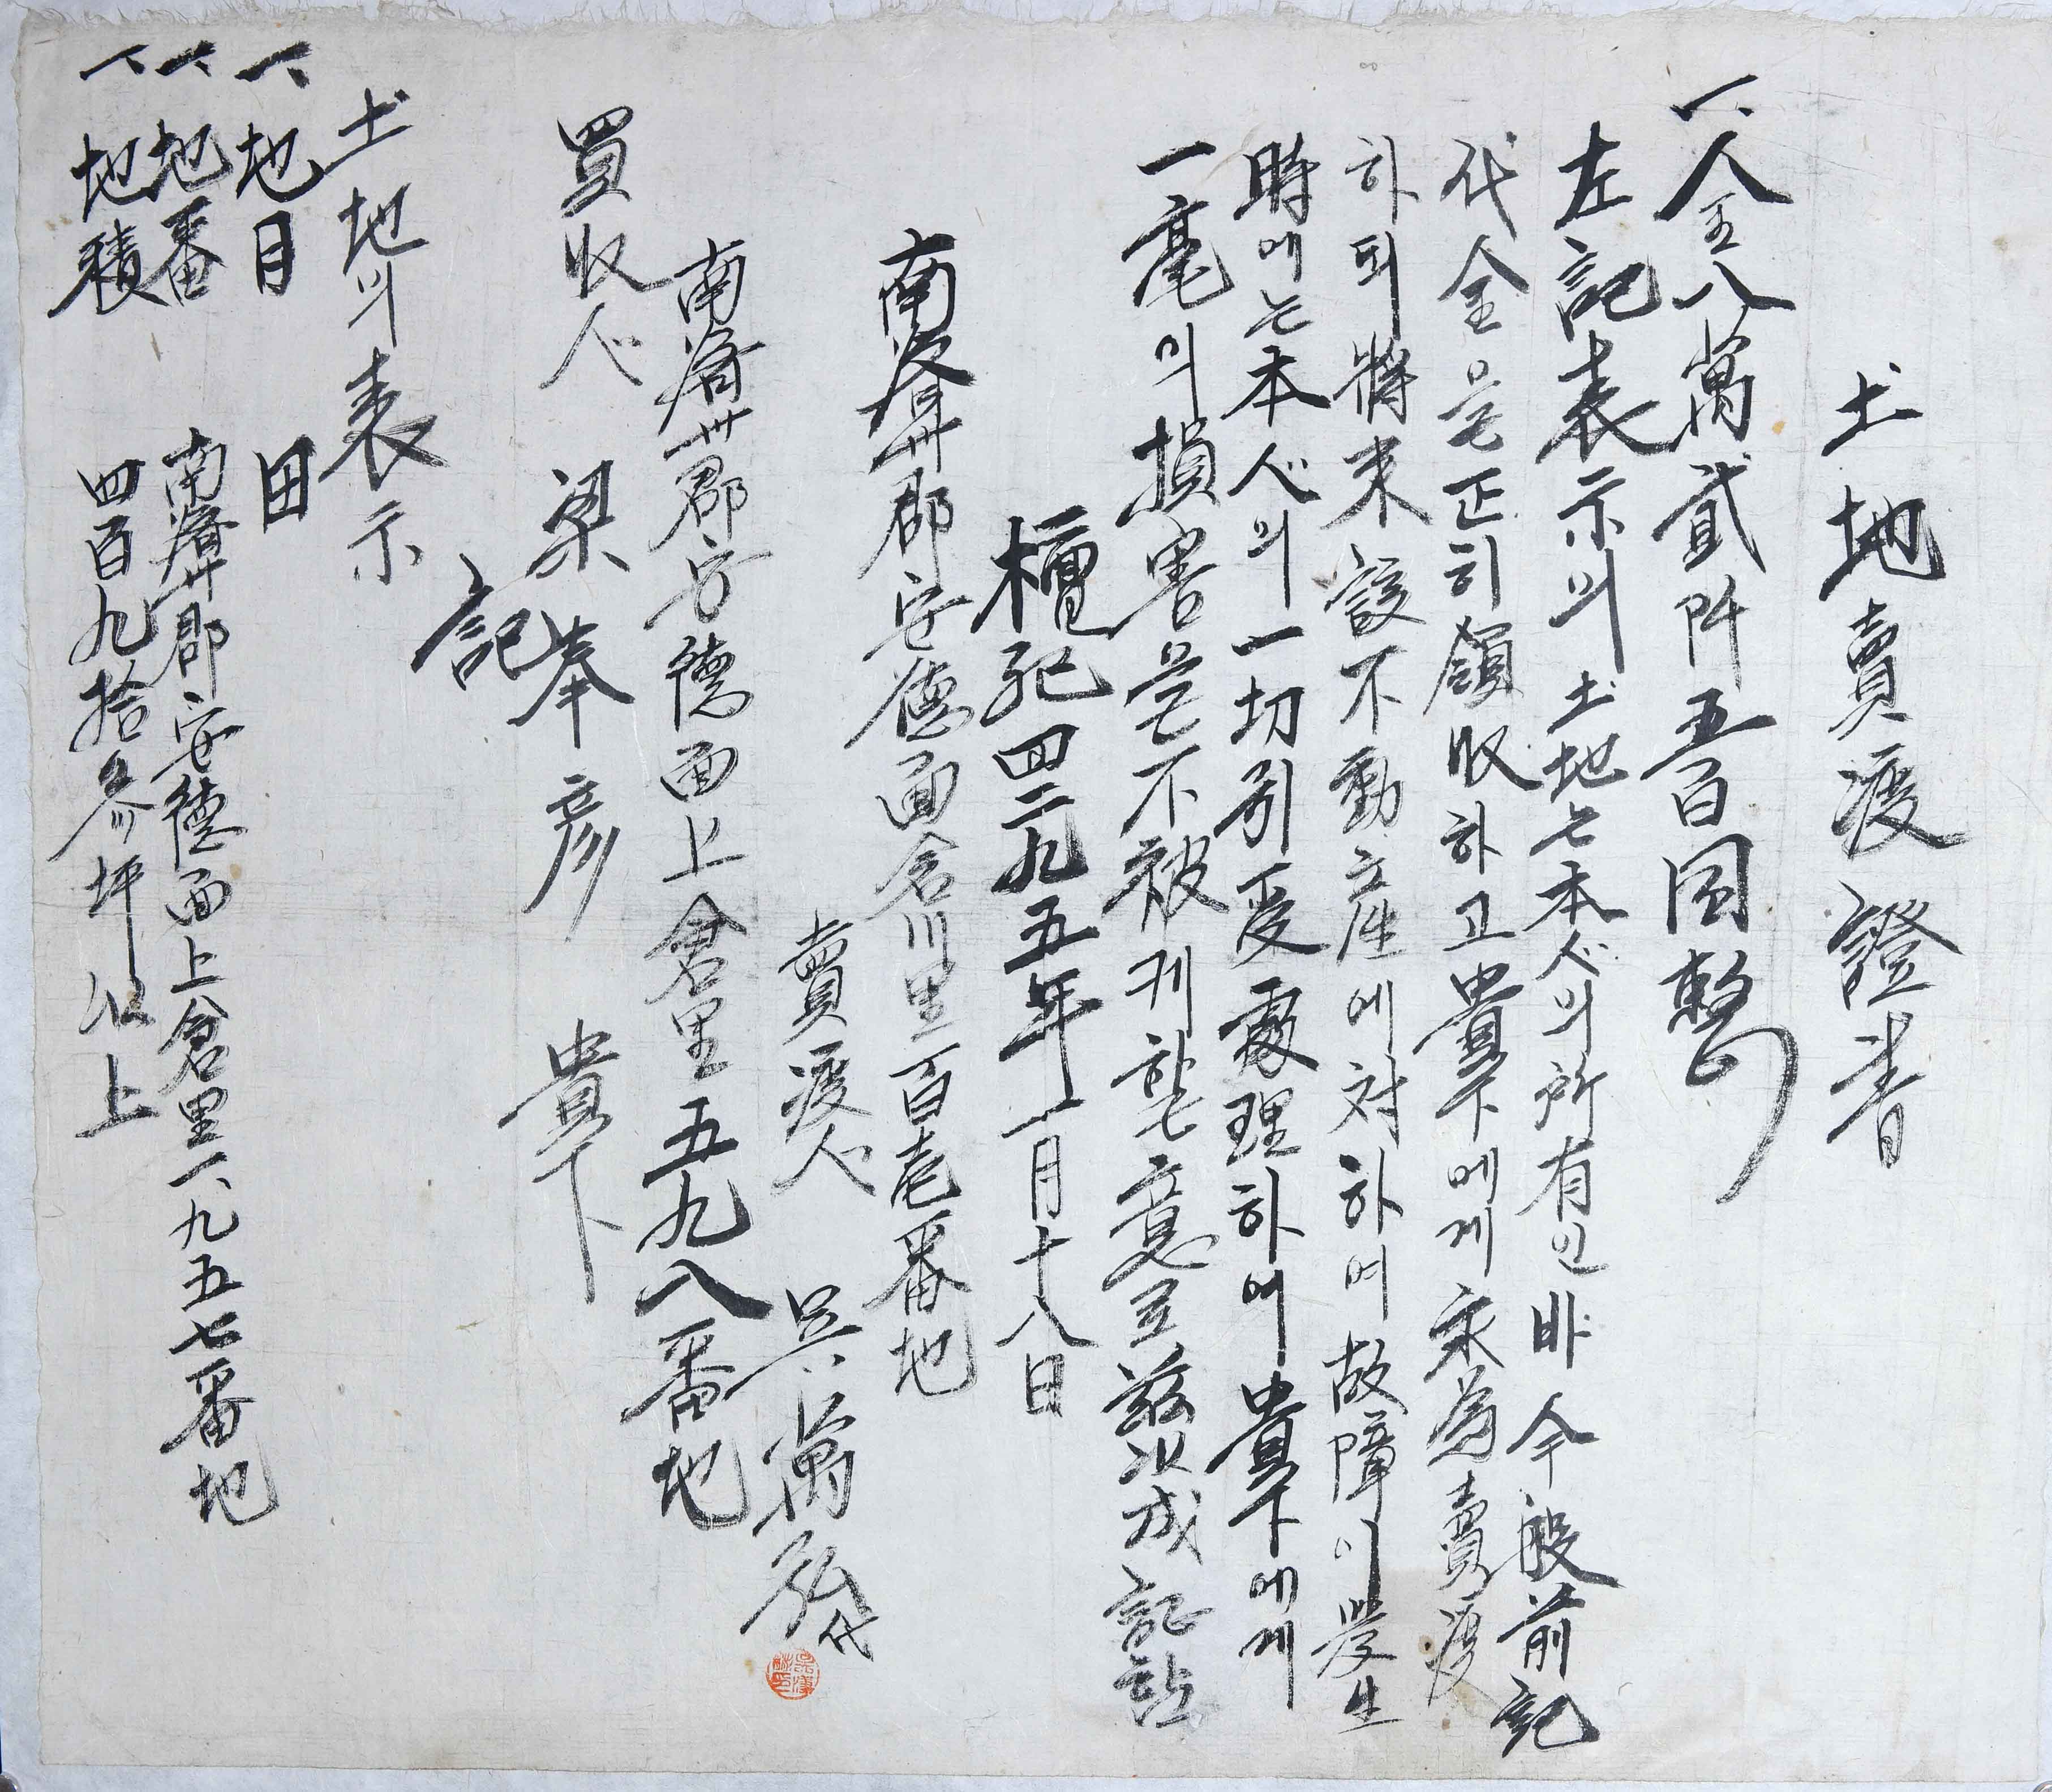 土地賣渡證書
一、金八萬貳阡五百圜整
左記表示의土地는本人의所有인바今般前記
代金을正히領收하고貴下에게永爲賣渡
하되將來該不動産에対하여故障이發生
時에는本人의一切引受處理하여貴下에게
一毫의損害을不被케하는意로玆以成記
檀紀四二九五年一月十八日
郡安德面 川里百 番地
賣渡人 吳萬弘代
郡安德面上倉里五九八番地
買收人 梁奉彦 貴下
記
土地의表示
一、地目 田
一、地番 郡安德面上倉里一九五七番地
一、地積 四百九拾參坪 以上